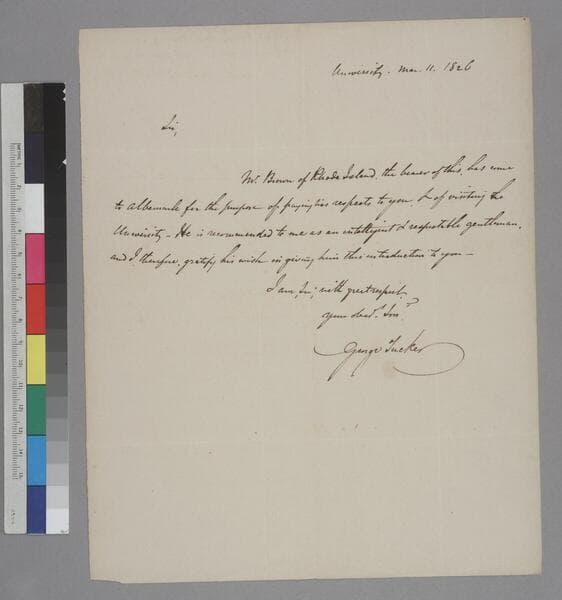 University. Mar. 11. 1826
Sir,
Mr. Brown of Rhode Island, the bearer of this, has come
to Albemarle for the purpose of paying his respects to you, & of visiting the
University – He is recommended to me as an intelligent & respectable gentleman,
and I, therefore, gratify his wish in giving him this introduction to you –
I am, Sir, with great respect,
your obedt. Servt.
George Tucker